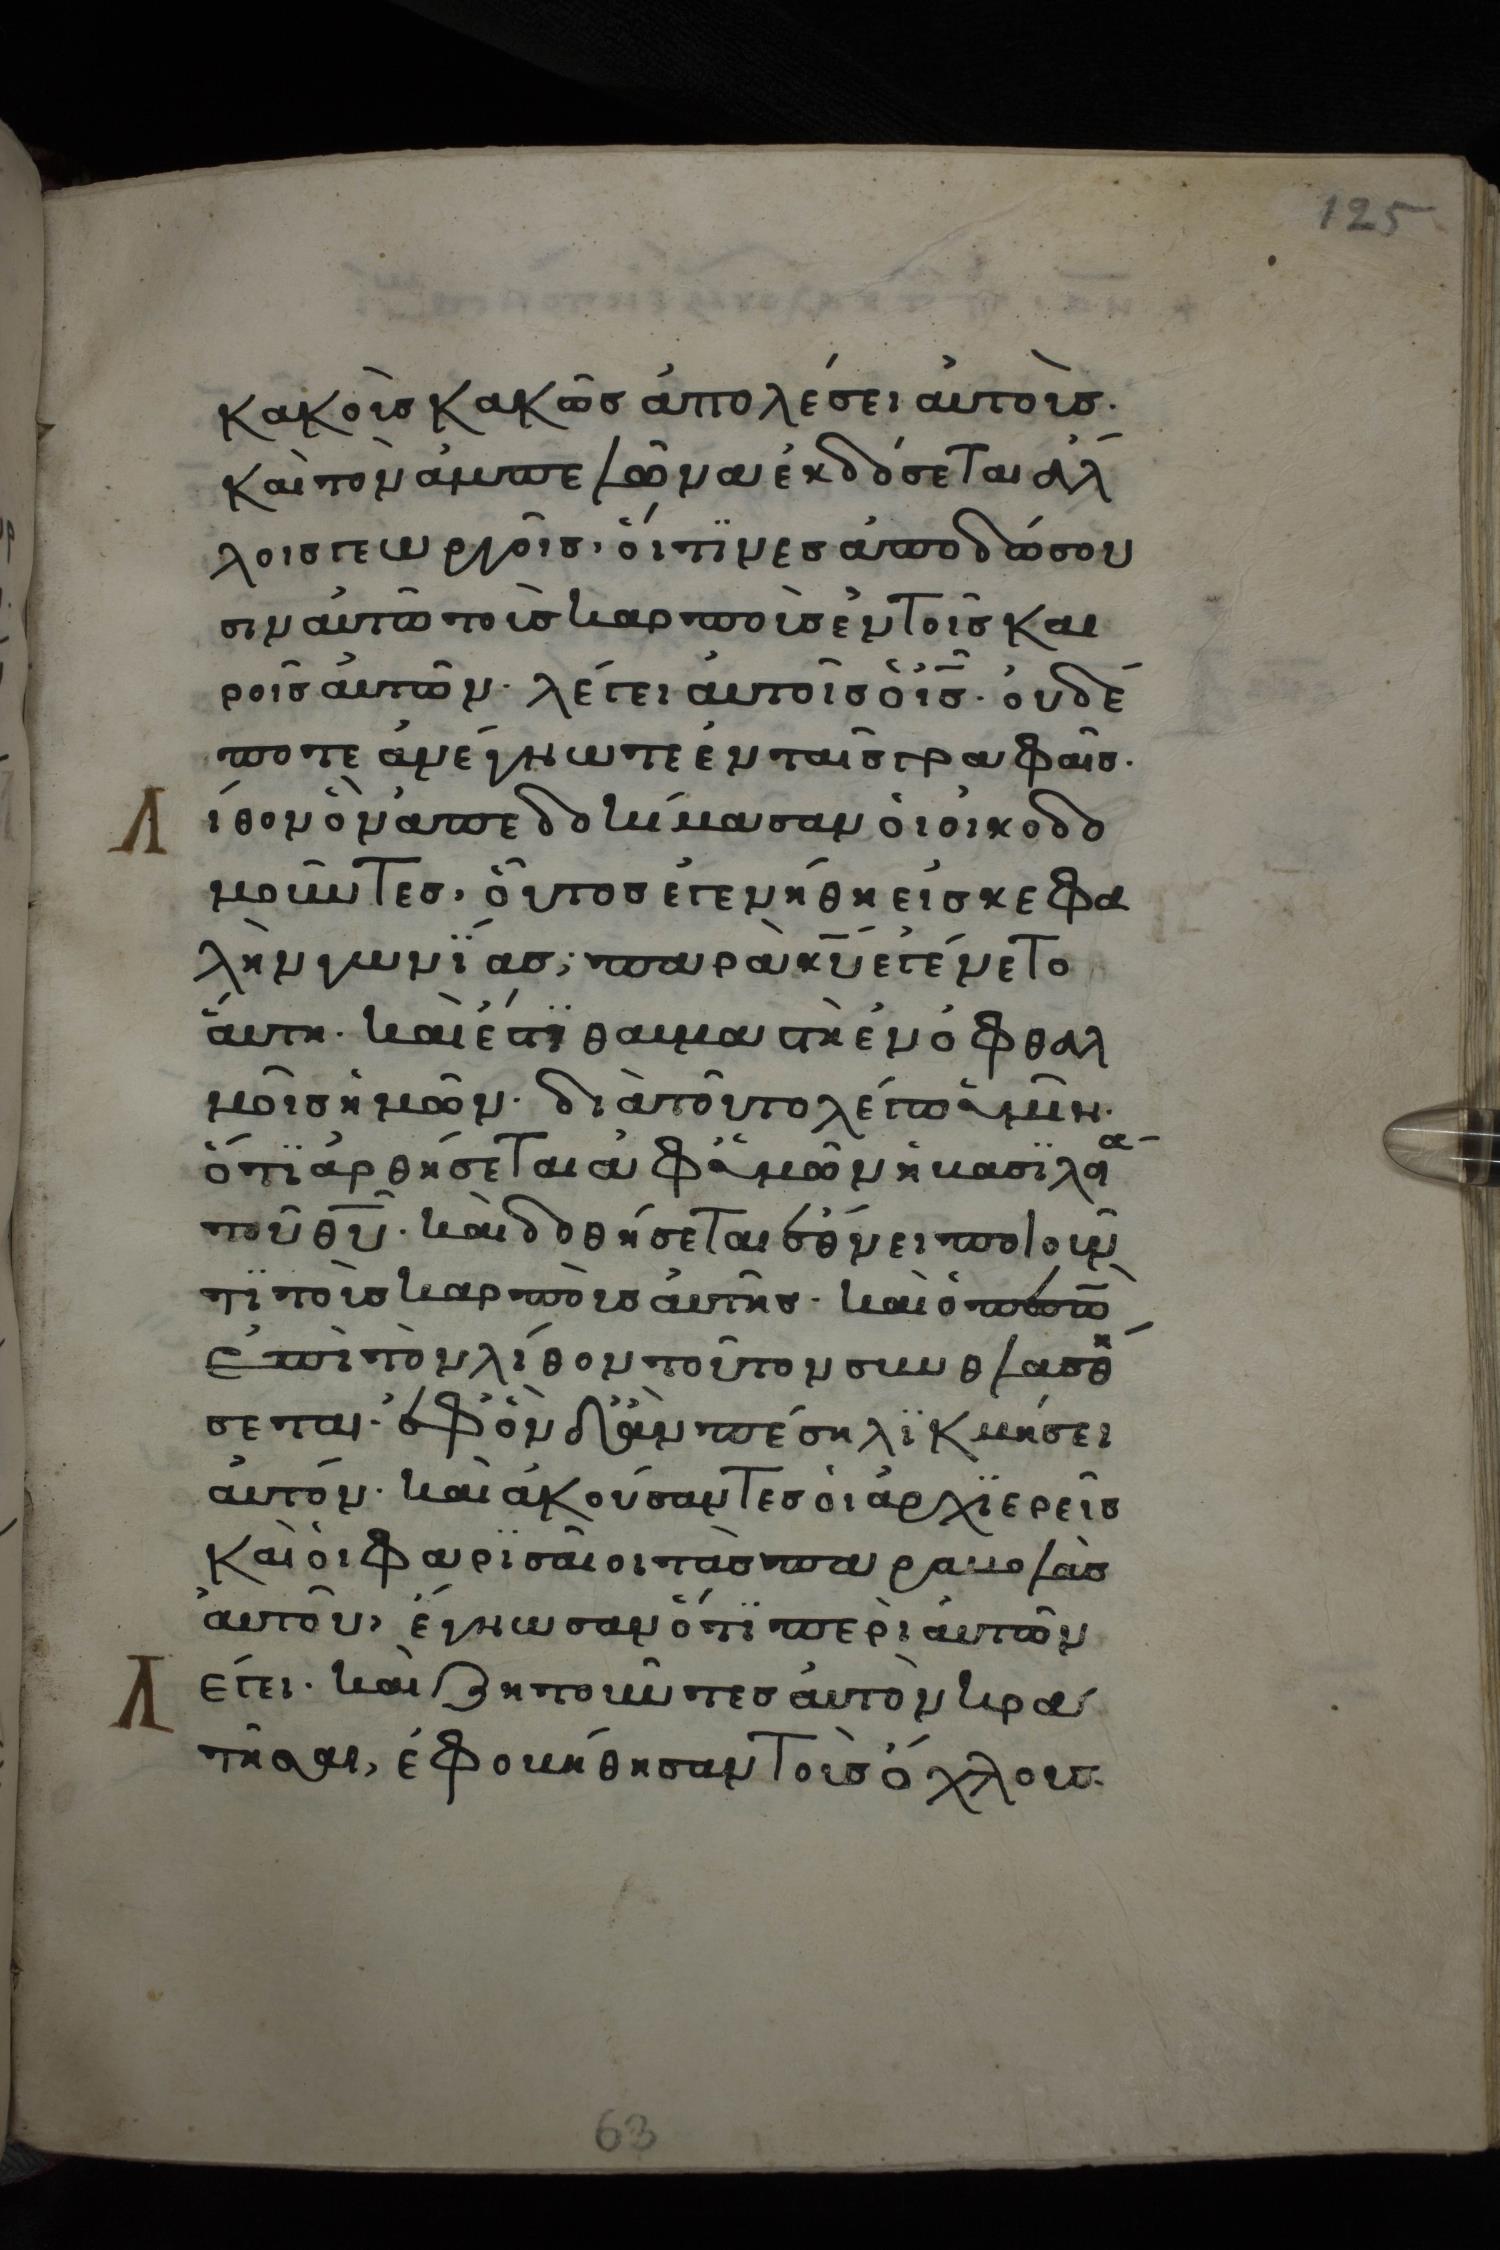 125
κακοὺς κακῶς ἀπολέσει αὐτοὺς·
καὶ τὸν ἀμπελῶνα ἐκδόσεται ἀλ
λοις γεωργοῖς, οἵτϊνες ἀποδώσου
σιν αὐτῶ τοὺς καρποὺς ἐν τοῖς και
ροῖς αὐτῶν· λέγει αὐτοῖς ὁ ἰς̅· οὐδέ
ποτε ἀνέγνωτε ἐν ταῖς γραφαῖς·
Λίθον ὃν ἀπεδοκίμασαν οἱ οἰκοδο
μοῦντες, οὗτος ἐγενήθη εἰς κεφα
λὴν γωνΐας; παρὰ κυ̅ ἐγένετο
αὕτη· καὶ ἔστϊ θαυμαστὴ ἐν ὀφθαλ
μοῖς ἡμῶν· διὰ τοῦτο λέγω ὑμῖν·
ὅτϊ ἀρθήσεται ἀφ' ὑμῶν ἡ βασϊλεία
τοῦ θυ̅· καὶ δοθήσεται ἔθνει ποιοῦν
τϊ τοὺς καρποὺς αὐτῆς· καὶ ὁ πεσὼν
ἐπὶ τὸν λίθον τοῦτον συνθλασθή
σεται· ἐφ' ὃν δ' ἂν πέση λϊκμήσει
αὐτόν· καὶ ἀκούσαντες οἱ ἀρχϊερεῖς
καὶ οἱ φαρϊσαῖοι τὰς παραβολὰς
αὐτοῦ, ἔγνωσαν ὅτϊ περὶ αὐτῶν
Λέγει· καὶ ζητοῦντες αὐτὸν κρα
τῆσαι, ἐφοβήθησαν τοὺς ὄχλους·
63